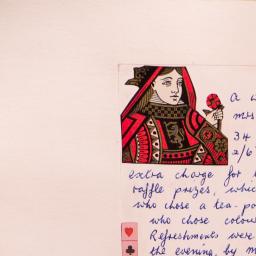 A w
mis
34
2/6
extra charge for t
raffle prizes, whic
who chose a tea-po
who chose colou
Refreshments were
the evening, by m